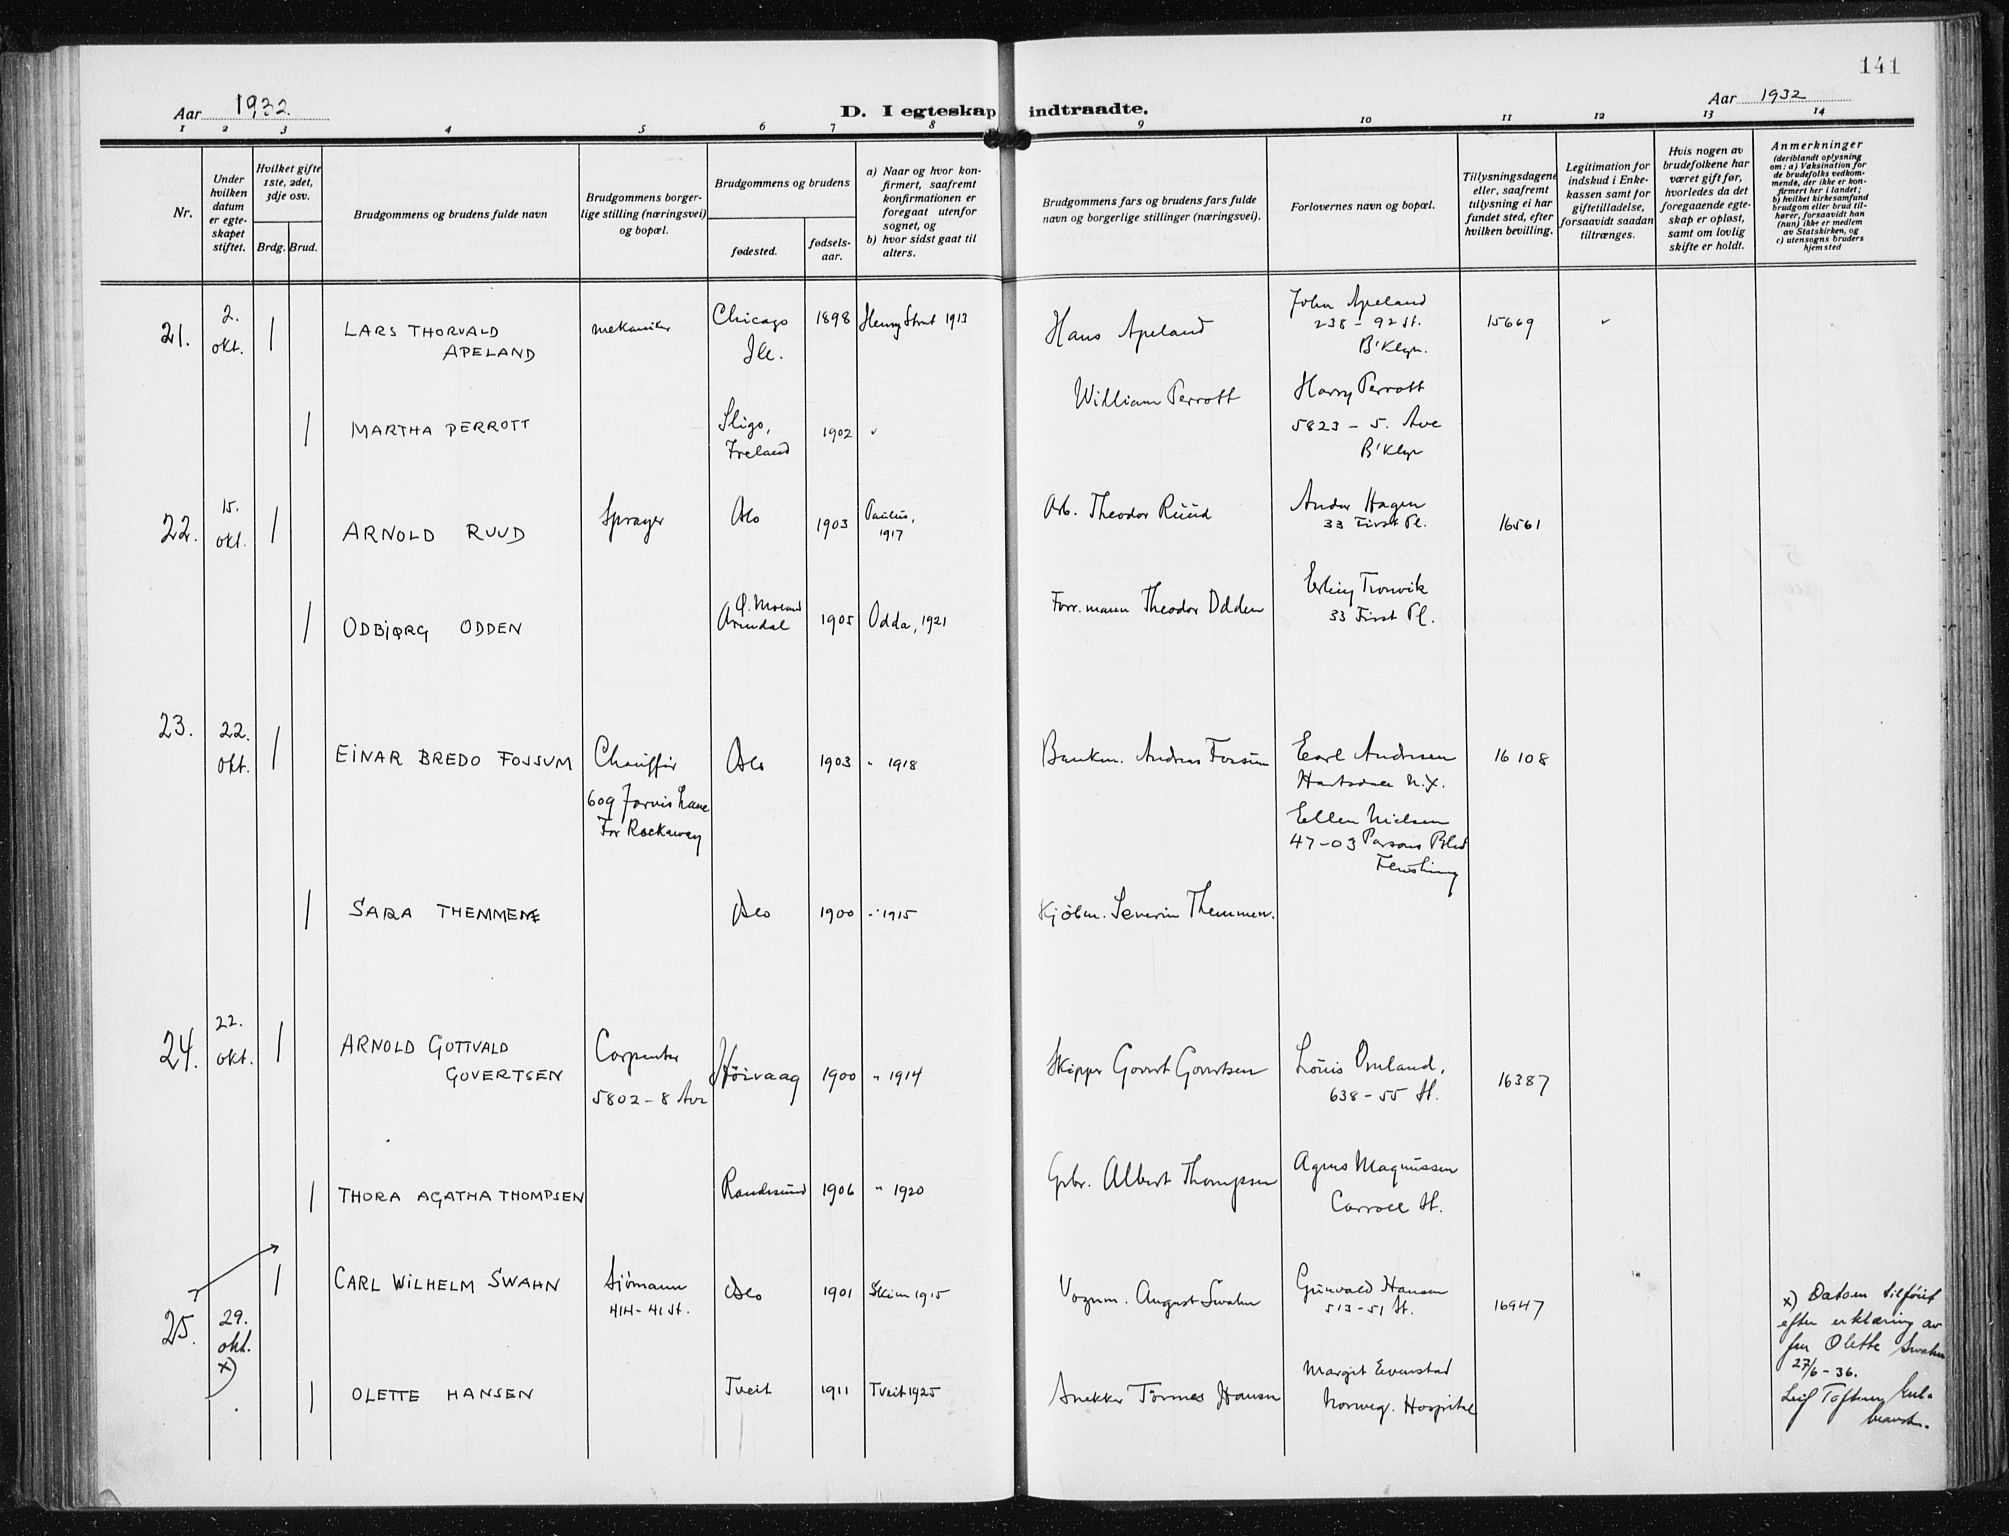 141
Aar 1932.
D. I egteskap indtraadte.
Aar 1932
1 2 3 4 5 6 7 8 9 10 11 12 13 14
Nr.
Under hvilken datum er egteskapet stiftet.
Hvilket gifte 1ste, 2det, 3dje osv.
Brdg. Brud.
Brudgommens og brudens fulde navn
Brudgommens borgerlige stilling (næringsvei) og bopæl.
Brudgommens og brudens
fødested.
fødselsaar.
a) Naar og hvor konfirmert, saafremt konfirmationen er foregaat utenfor sognet, og
b) hvor sidst gaat til alters.
Brudgommens fars og brudens fars fulde navn og borgerlige stillinger (næringsvei).
Forlovernes navn og bopæl.
Tillysningsdagene eller, saafremt tillysning ei har fundet sted, efter hvilken bevilling.
Legitimation for indskud i Enkekassen samt for giftetilladelse, forsaavidt saadan tiltrænges.
Hvis nogen av brudefolkene har været gift før, hvorledes da det foregaaende egteskap er opløst, samt om lovlig skifte er holdt.
Anmerkninger
(deriblandt oplysning om: a) Vaksination for de brudefolks vedkommende, der ikke er konfirmert her i landet; b) hvilket kirkesamfund brudgom eller brud tilhører, forsaavidt han (hun) ikke er medlem av Statskirken, og c) utensogns bruders hjemsted
21. 2. okt. 1 LARS THORVALD APELAND mekaniker Chicago Ill. 1898 Henry Street 1913 Hans Apeland John Apeland 238 – 92 St. B'Klyn. 15669
1 MARTHA PERROTT Sligo, Ireland 1902 William Perrott Harry Perrott 5823 – 5. Ave B'Klyn
22. 15. okt. 1 ARNOLD RUUD Sprayer Oslo 1903 Paulus, 1917 Arb. Theodor Ruud Hagen 33 First Pl. 16561
1 ODBJØRG ODDEN Arendal 1905 Odda, 1921 Form. mann Theodor Odden Erling Tronvik 33 First Pl.
23. 22. okt. 1 EINAR BREDO FOSSUM Chauffør 609 Jarvis Lane Far Rockaway Oslo 1903 " 1918 Bankm. Andreas Fossum Earl Andresen Hartsdale N.Y. 16108
Ellen Nielsen 47-03 Parsons Blvd Flushing
1 SARA THEMMEN Oslo 1900 " 1915 Kjøbm. Severin Themmen.
24. 22. okt. 1 ARNOLD GOTTVALD GOVERTSEN Carpenter 5802 – 8 Ave Høivaag 1900 " 1914 Skipper Govert Govertsen Louis Omland, 638 – 55 St. 16387
1 THORA AGATHA THOMPSEN Randesund 1906 " 1920 Gbr. Albert Thompsen Agnes Magnussen Carroll St.
25. 29. okt. x) 1 CARL WILHELM SWAHN Sjömann 414 – 41 St. Oslo 1901 Skien 1915 Vognm. August Swahn Gunvald Hansen 513 – 51 St. 16947
1 OLETTE HANSEN Tveit 1911 Tveit 1925 Snekker Tönnes Hansen Margit Evenstad Norweg. Hospital
x) Datoen tilföiet
efter erklæring av
fru Olette Swahn
27/6 – 36.
Leif